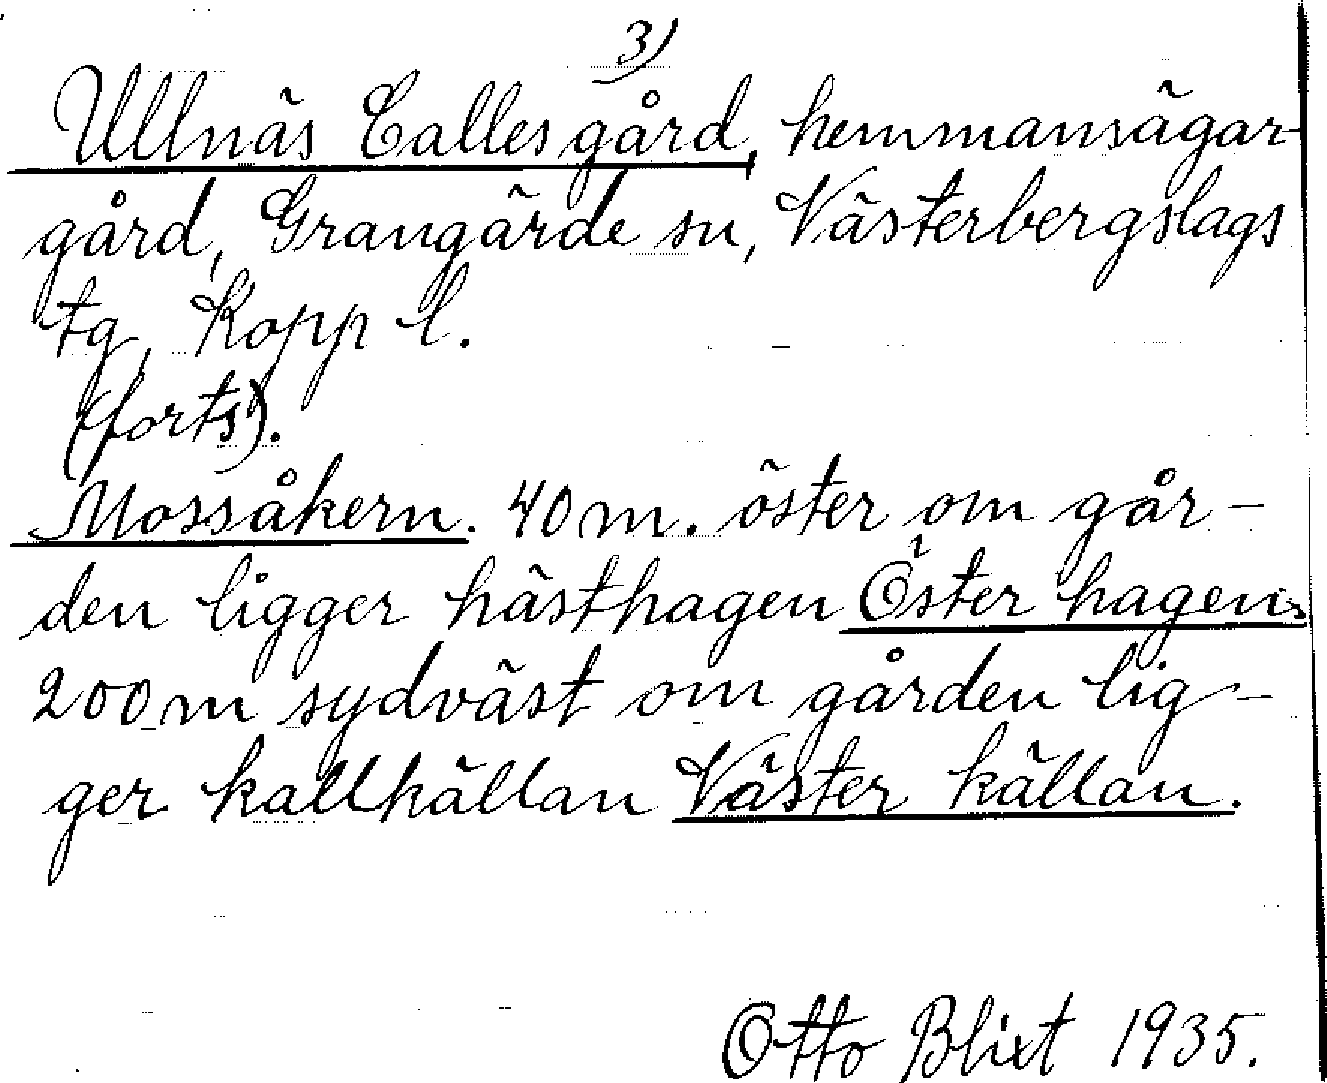 3)
Ullnäs Calles gård, hemmansägar-
gård, Grangärde sn, Västerbergslags
tg, Kopp l.
(forts).
Mossåkern. 40 m. öster om går-
den ligger hästhagen Öster hagen.
200 m sydväst om gården lig-
ger kallkällan Väster källan.
Otto Blixt 1935.